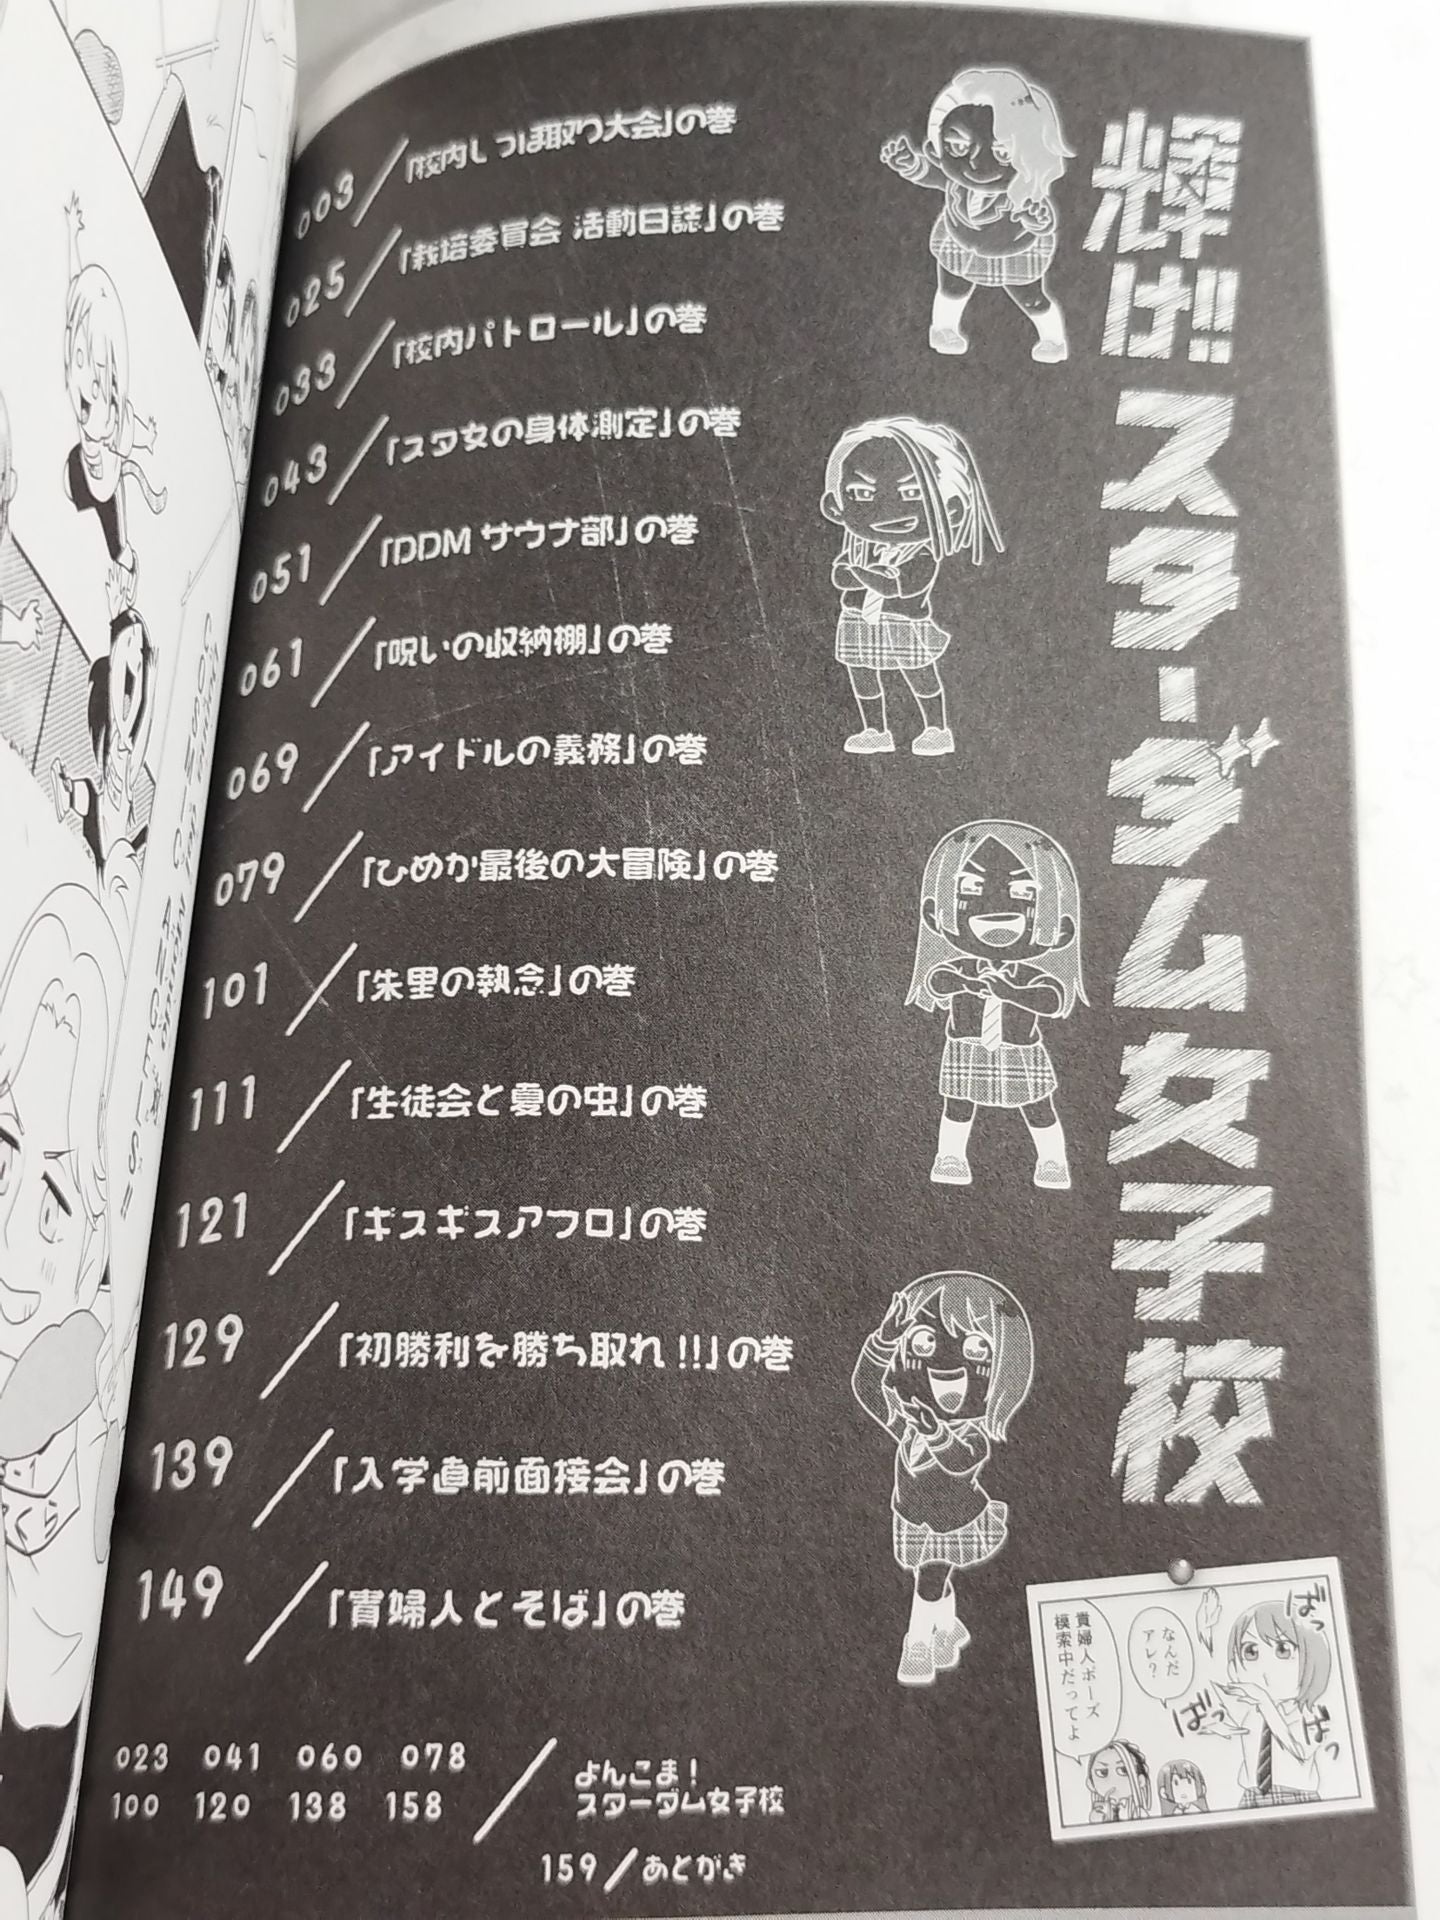 輝け!!スターダム女子校
003/「校内しっぽ取り大会」の巻
025/「栽培委員会 活動日誌」の巻
033/「校内パトロール」の巻
043/「スタ女の身体測定」の巻
051/「DDM サウナ部」の巻
061/「呪いの収納棚」の巻
069/「アイドルの義務」の巻
079/「ひめか最後の大冒険」の巻
101/「朱里の執念」の巻
111/「生徒会と夏の虫」の巻
121/「ギスギスアフロ」の巻
129/「初勝利を勝ち取れ!!」の巻
139/「入学直前面接会」の巻
149/「貴婦人とそば」の巻
023 041 060 078
100 120 138 158
よんこま!
スターダム女子校
159/あとがき
ばっ
ばっ
ばっ
なんだ
アレ?
貴婦人ポーズ
模索中だってよ